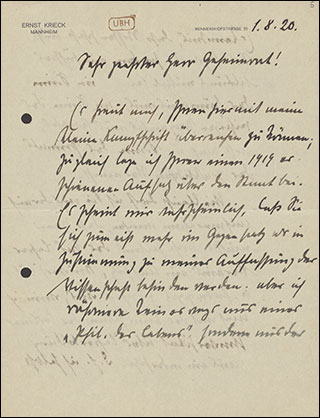 ERNST KRIECK
MANNHEIM
UBH
RENNERSHOFSTRASSE
1.8.20.
Sehr geehrter Herr Geheimrat!
Es freut mich, Ihnen hiermit meine
kleine Kampfschrift überreichen zu können;
zugleich lege ich Ihnen einen 1919 er-
schienenen Aufsatz über den Staat bei.
Es scheint mir wahrscheinlich, daß Sie
sich zumeist mehr im Gegensatz als in
Zustimmung zu meiner Auffassung der
Wissenschaft befinden werden. Aber ich
keineswegs aus einer
„Phil. des Lebens“, sondern aus der